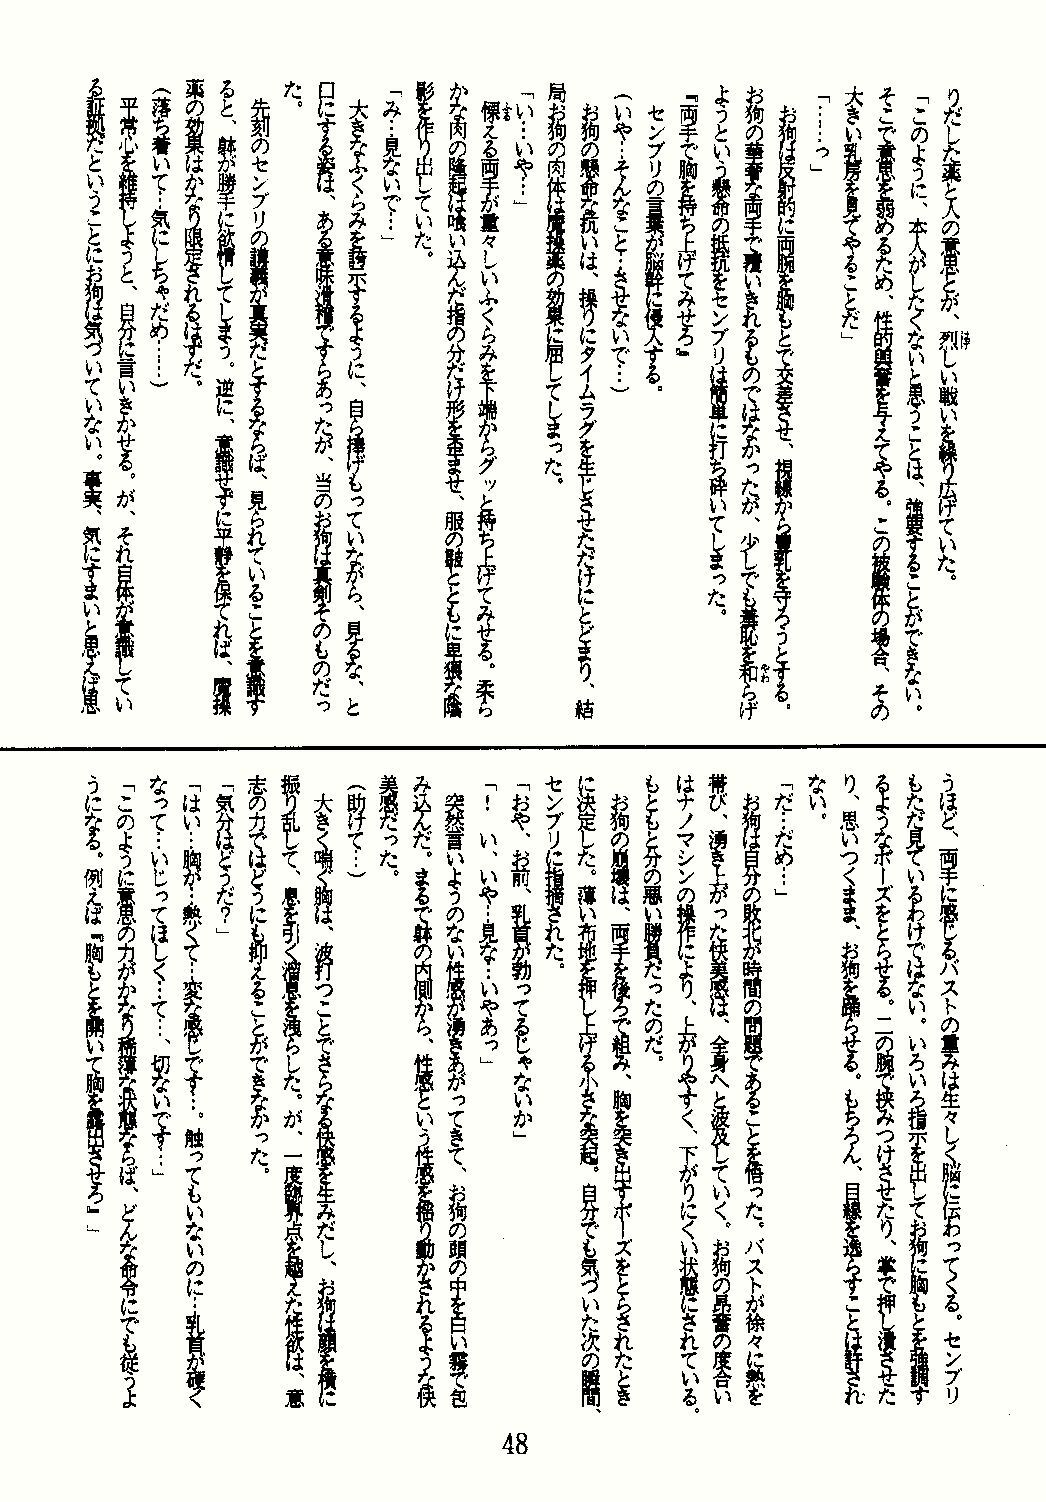 りだした薬と人の意思とが、烈しい戦いを繰り広げていた。
「このように、本人がしたくないと思うことは、強要することができない。
そこで意思を弱めるため、性的興奮を与えてやる。この被験体の場合、その
大きい乳房を見てやることだ」
「……っ」
お狗は反射的に両腕を胸もとで交差させ、視線から豊乳を守ろうとする。
お狗の華奢な両手で覆いきれるものではなかったが、少しでも羞恥を和らげ
ようという懸命の抵抗をセンブリは簡単に打ち砕いてしまった。
『両手で胸を持ち上げてみせろ』
センブリの言葉が脳幹に侵入する。
(いや…そんなこと…させないで…)
お狗の懸命な抗いは、操りにタイムラグを生じさせただけにとどまり、結
局お狗の肉体は魔操薬の効果に屈してしまった。
「い…いや…」
慄える両手が重々しいふくらみを下端からグッと持ち上げてみせる。柔ら
かな肉の隆起は喰い込んだ指の分だけ形を歪ませ、服の皺とともに卑猥な陰
影を作り出していた。
「み…見ないで…」
大きなふくらみを誇示するように、自ら捧げもっていながら、見るな、と
口にする姿は、ある意味滑稽ですらあったが、当のお狗は真剣そのものだっ
た。
先刻のセンブリの講義が真実だとするならば、見られていることを意識す
ると、躰が勝手に欲情してしまう。逆に、意識せずに平静を保てれば、魔操
薬の効果はかなり限定されるはずだ。
(落ち着いて…気にしちゃだめ……)
平常心を維持しようと、自分に言いきかせる。が、それ自体が意識してい
る証拠だということにお狗は気づいていない。事実、気にすまいと思えば思
うほど、両手に感じるバストの重みは生々しく脳に伝わってくる。センブリ
もただ見ているわけではない。いろいろ指示を出してお狗に胸もとを強調す
るようなポーズをとらせる。二の腕で挟みつけさせたり、掌で押し潰させた
り、思いつくまま、お狗を踊らせる。もちろん、目線を逸らすことは許され
ない。
「だ…だめ…」
お狗は自分の敗北が時間の問題であることを悟った。バストが徐々に熱を
帯び、湧き上がった快美感は、全身へと波及していく。お狗の昂奮の度合い
はナノマシンの操作により、上がりやすく、下がりにくい状態にされている。
もともと分の悪い勝負だったのだ。
お狗の崩壊は、両手を後ろで組み、胸を突き出すポーズをとらされたとき
に決定した。薄い布地を押し上げる小さな突起。自分でも気づいた次の瞬間、
センブリに指摘された。
「おや、お前、乳首が勃ってるじゃないか」
「！ い、いや…見な…いやあっ」
突然言いようのない性感が湧きあがってきて、お狗の頭の中を白い霧で包
み込んだ。まるで躰の内側から、性感という性感を揺り動かされるような快
美感だった。
(助けて…)
大きく喘ぐ胸は、波打つことでさらなる快感を生みだし、お狗は顔を横に
振り乱して、息を引く溜息を洩らした。が、一度臨界点を越えた性欲は、意
志の力ではどうにも抑えることができなかった。
「気分はどうだ？」
「はい…胸が…熱くて…変な感じです…。触ってもいないのに…乳首が硬く
なって…いじってほしく…て…、切ないです…」
「このように意思の力がかなり稀薄な状態ならば、どんな命令にでも従うよ
うになる。例えば『胸もとを開いて胸を露出させろ』」
48